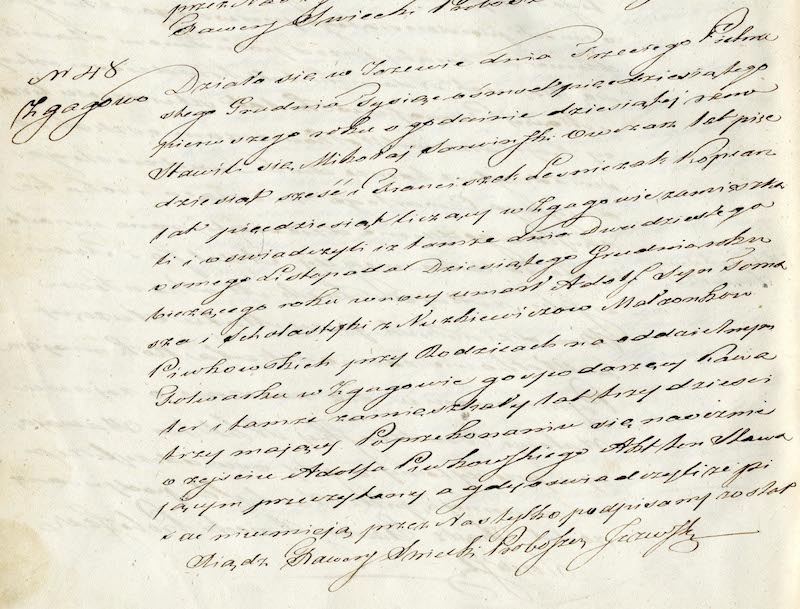 przez Nas
Xawery Swiecki Probosz
N 48
Zgagowo
Działo się w Jeżewie dnia Trzeciego
stego Grudnia Tysiąc ośmset pięcdziesiątego
pierwszego roku o godzinie dziesiątej rano
Stawili się Mikołaj Owczarz lat pięc
dziesiąt sześć i Franciszek Leśniczak Kopiarz
lat pięcdziesiąt liczący w Zgagowie zamieszka
li i oswiadczyli iż tamże dnia Dwudziestego
osmego Listopada Dziesiątego Grudnia roku
bieżącego roku w nocy umarł Adolf Syn Toma
sza i Scholastyki z Nuzkiewiczow Małzonkow
Piwkowskich przy Rodzicach na oddzielnym
Folwarku w Zgagowie gospodarzący Kawa
ler i tamże zamieszkały lat trzydzieści
trzy mający Po przekonaniu się naocznie
o zejściu Adolfa Piwkowskiego Akt ten Stawa
jącym przeczytany a gdy oswiadczyli że pi
sać nieumieją przez Nas tylko podpisany został
Xiądz Xawery Swiecki Probosz Jezewski